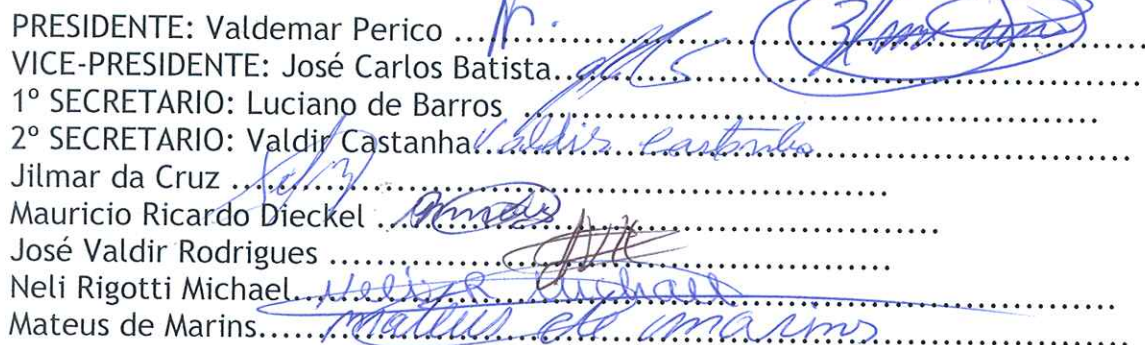 PRESIDENTE: Valdemar Perico ...............
VICE-PRESIDENTE: José Carlos Batista...............
1º SECRETARIO: Luciano de Barros ...............
2º SECRETARIO: Valdir Castanha Valdir Castanha...............
Jilmar da Cruz ...............
Mauricio Ricardo Dieckel ...............
José Valdir Rodrigues ...............
Neli Rigotti Michael...Neli R Michael...............
Mateus de Marins......Mateus de Marins...............